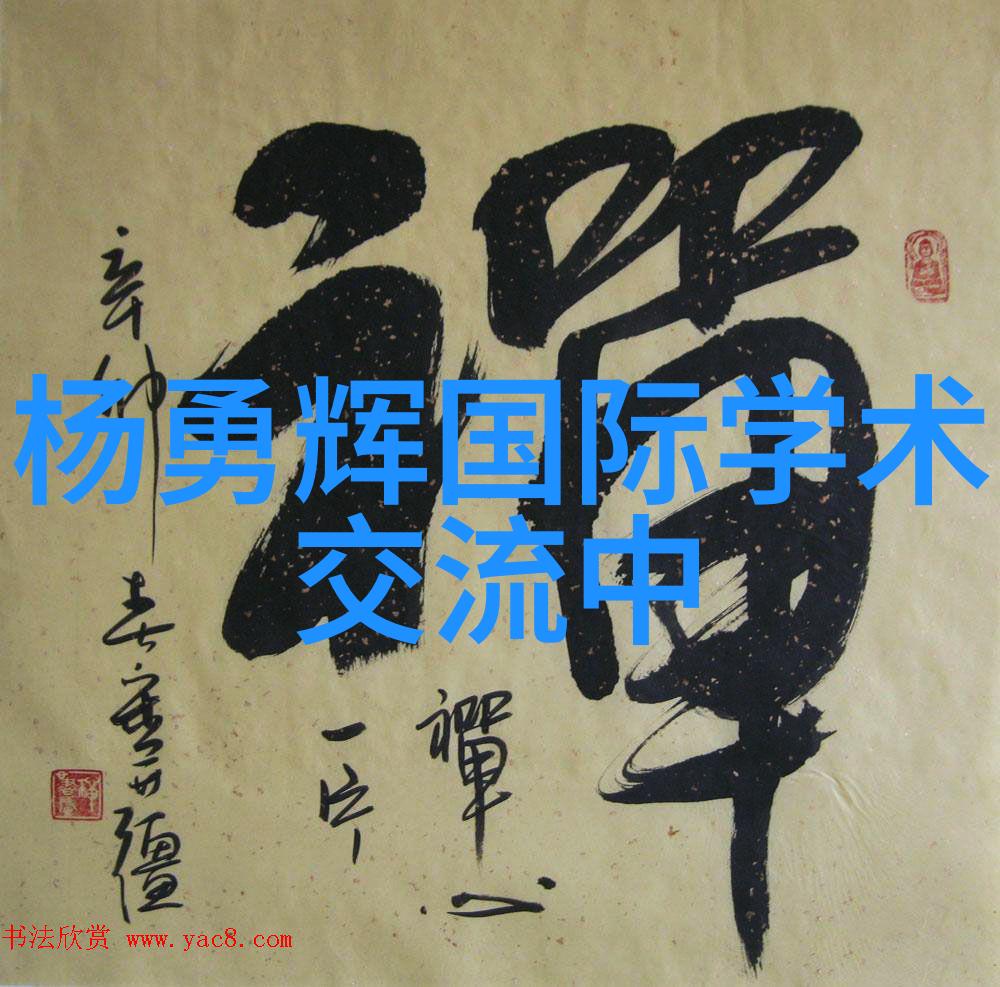 禪
杨勇辉国际学术
交流中
禪心
一片
书法欣赏 www.yac8.com